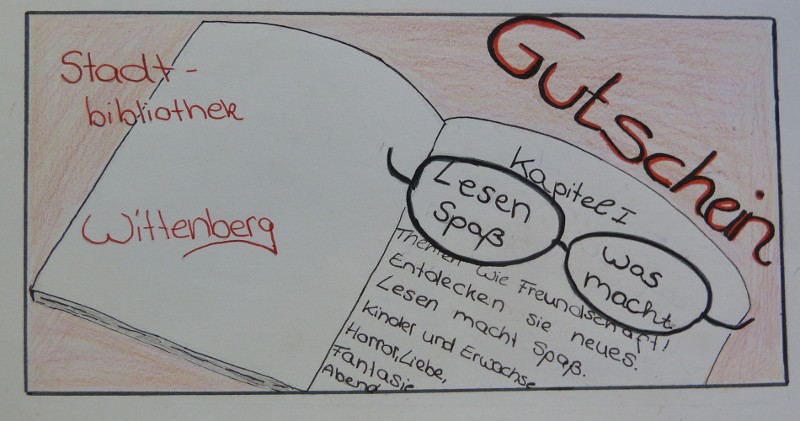 Stadt-
bibliothek
Wittenberg
Gutschein
Kapitel I
Lesen
Spaß
was
macht
Themen wie Freundschaft!
Entdecken sie neues.
Lesen macht Spaß.
Kinder und Erwachse
Horror, Liebe,
Fantasie
Abend